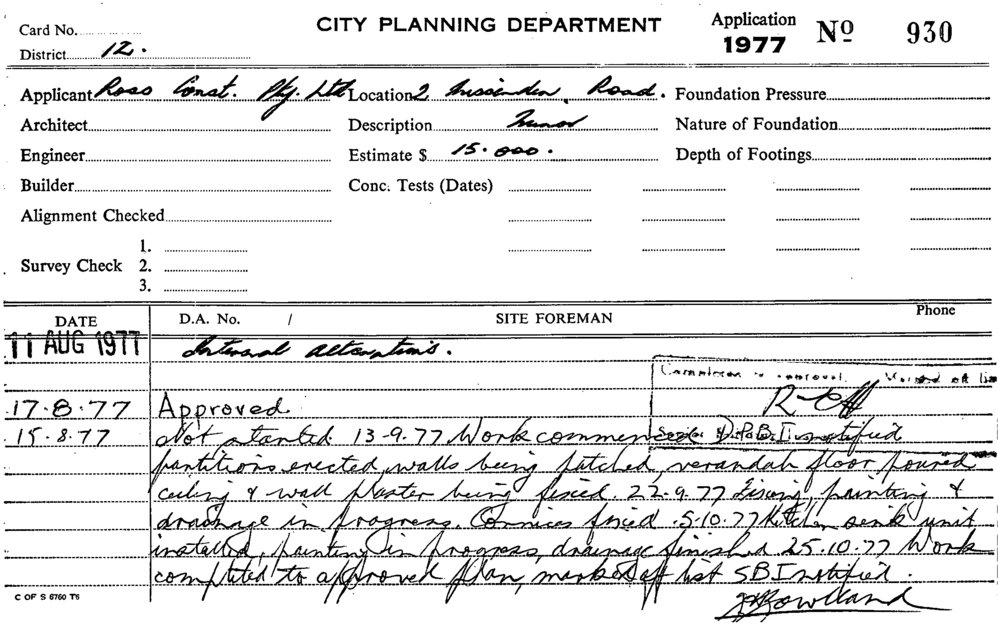 CITY PLANNING DEPARTMENT
Card No.
District 12.
Application 1977 Nº 930
Applicant Ross Const. Pty. Ltd Location 2 Missenden Road. Foundation Pressure
Architect Description Minor Nature of Foundation
Engineer Estimate $ 15.000. Depth of Footings
Builder Conc. Tests (Dates)
Alignment Checked
1.
Survey Check 2.
3.
DATE D.A. No. / SITE FOREMAN Phone
11 AUG 1977 Internal alterations.
approval. Marked off
17.8.77 Approved
15.8.77 Not started 13-9.77 Work commenced D.P.B.I notified
partitions erected, walls being patched, verandah floor poured
ceiling & wall plaster being fixed 22.9.77 Fixing, painting &
drainage in progress. Cornices fixed .5.10.77 Kitchen sink unit
installed, painting in progress, drainage finished 25.10.77 Work
completed to approved plan, marked off list SBI notified.
Rowland
C OF S 6760 T6